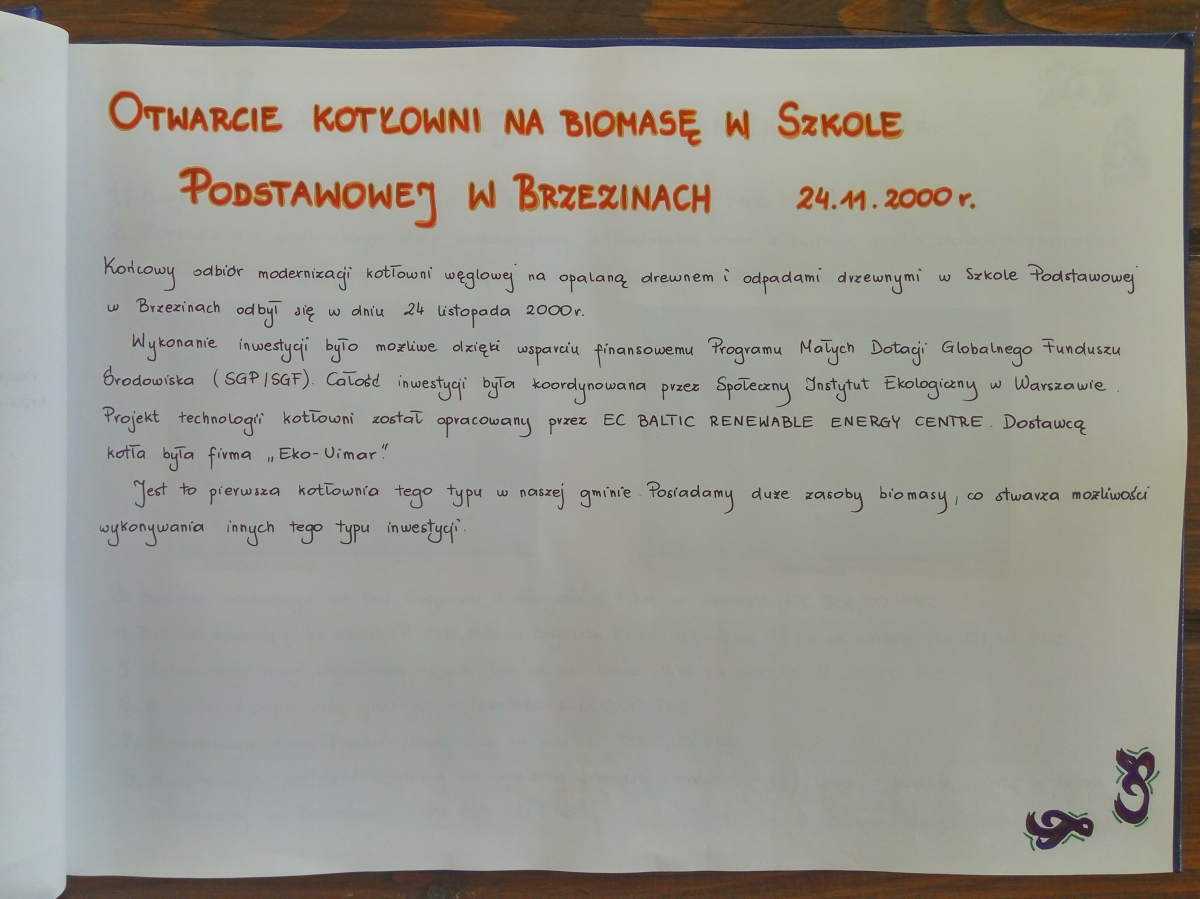 OTWARCIE KOTŁOWNI NA BIOMASĘ W SZKOLE
PODSTAWOWEJ W BRZEZINACH 24.11.2000 r.
Końcowy odbiór modernizacji kotłowni węglowej na opalaną drewnem i odpadami drzewnymi w Szkole Podstawowej
w Brzezinach odbył się w dniu 24 listopada 2000 r.
Wykonanie inwestycji było możliwe dzięki wsparciu finansowemu Programu Małych Dotacji Globalnego Funduszu
Środowiska (SGP/SGF). Całość inwestycji była koordynowana przez Społeczny Instytut Ekologiczny w Warszawie.
Projekt technologii kotłowni został opracowany przez EC BALTIC RENEWABLE ENERGY CENTRE. Dostawcą
kotła była firma „Eko-Vimar”.
Jest to pierwsza kotłownia tego typu w naszej gminie. Posiadamy duże zasoby biomasy, co stwarza możliwości
wykonywania innych tego typu inwestycji.